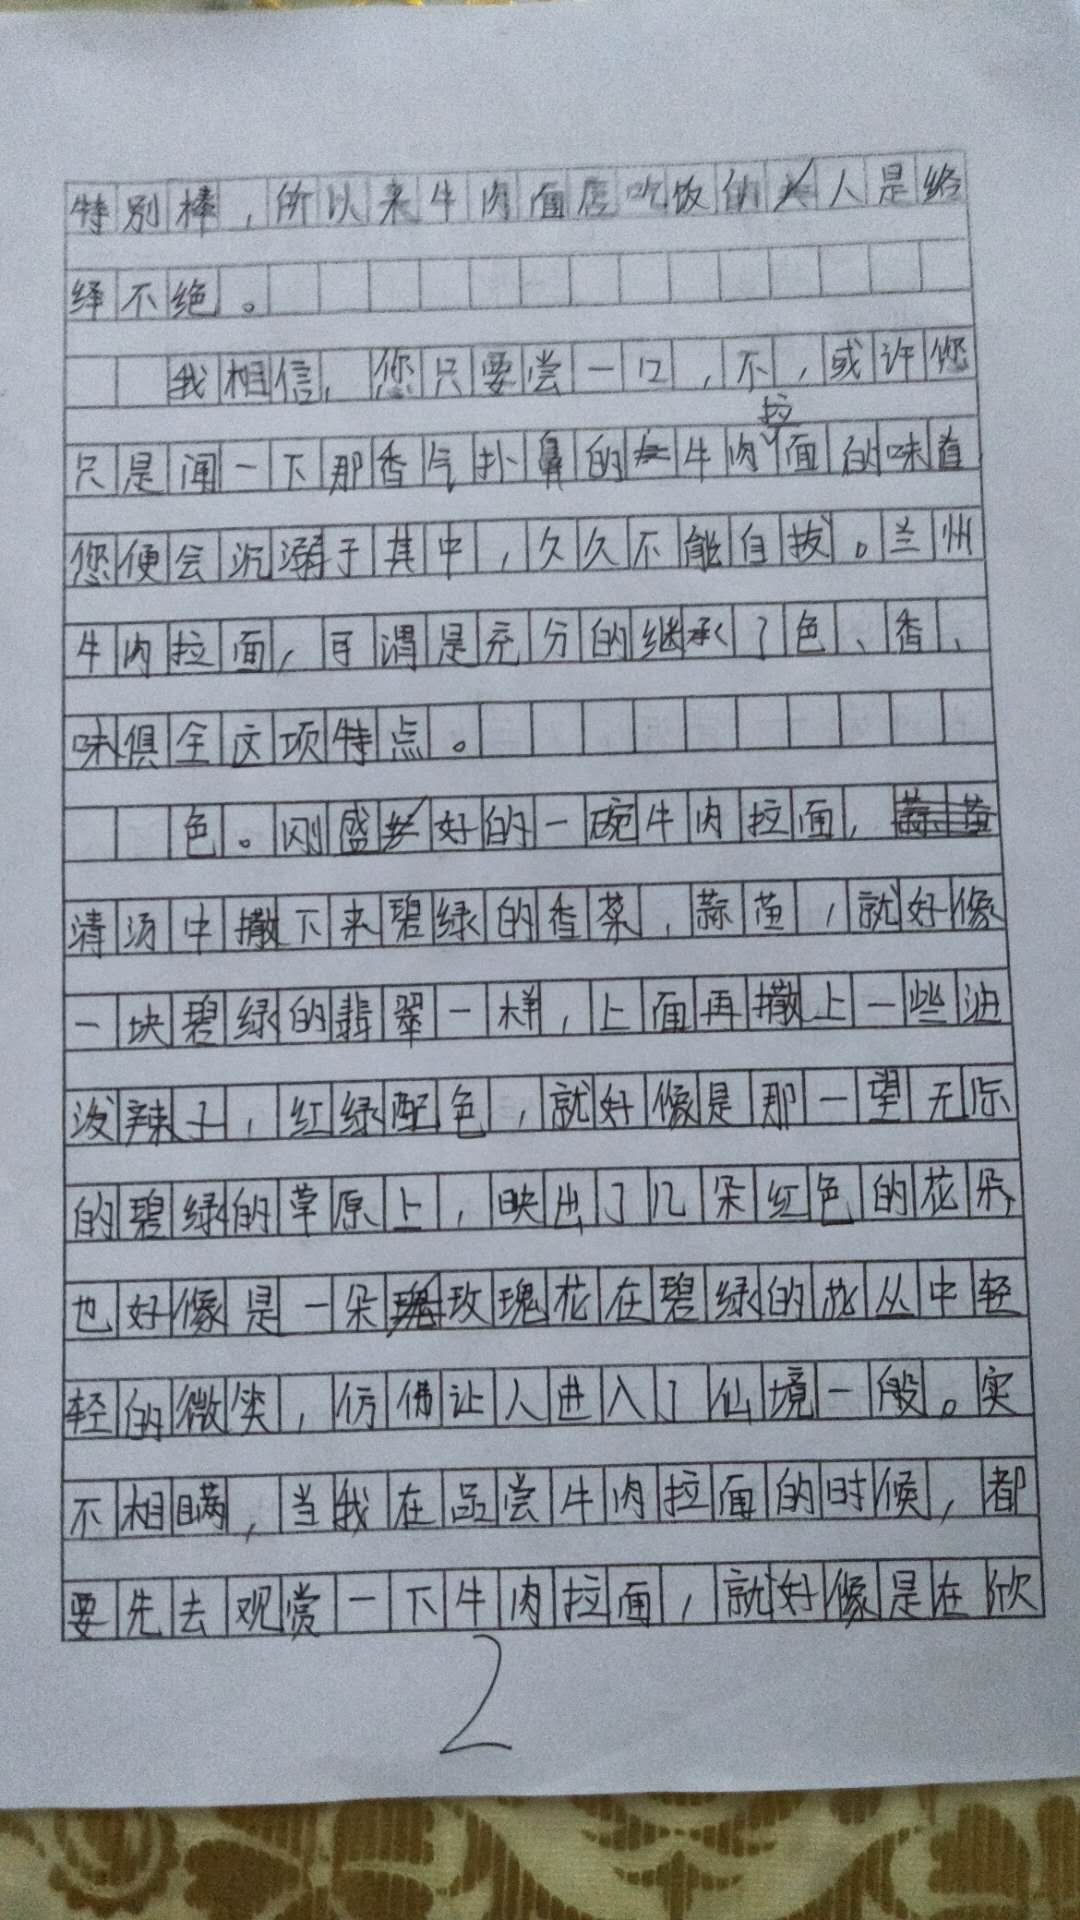 特别棒，所以来牛肉面店吃饭的人是络
绎不绝。
我相信，您只要尝一口，不，或许您
只是闻一下那香气扑鼻的牛肉拉面的味道
您便会沉溺于其中，久久不能自拔。兰州
牛肉拉面，可谓是充分的继承了色、香、
味俱全这项特点。
色。刚盛好的一碗牛肉拉面，
清汤中撒下来碧绿的香菜，蒜苗，就好像
一块碧绿的翡翠一样，上面再撒上一些油
泼辣子，红绿配色，就好像是那一望无际
的碧绿的草原上，映出了几朵红色的花朵，
也好像是一朵玫瑰花在碧绿的花丛中轻
轻的微笑，仿佛让人进入了仙境一般。实
不相瞒，当我在品尝牛肉拉面的时候，都
要先去观赏一下牛肉拉面，就好像是在欣
2